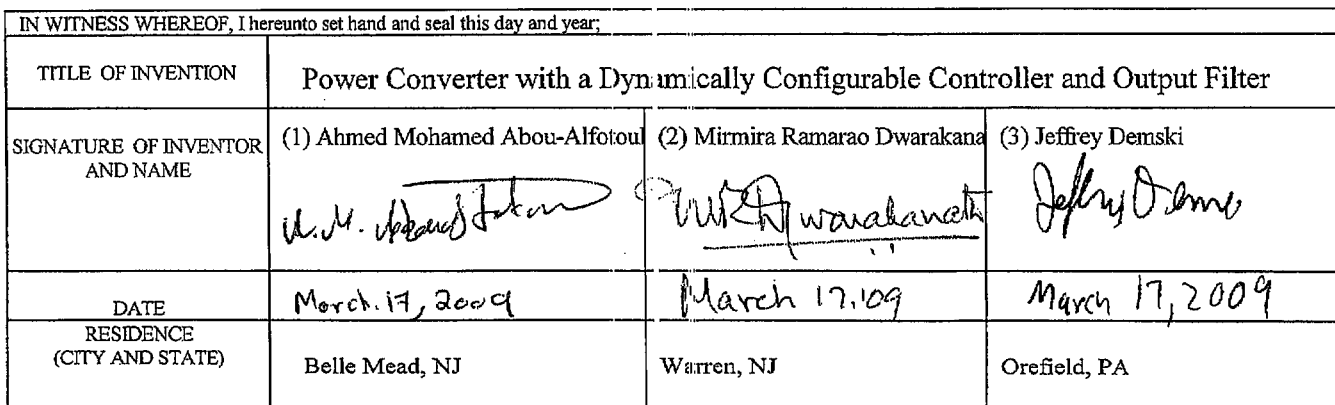 IN WITNESS WHEREOF, I hereunto set hand and seal this day and year;
TITLE OF INVENTION
Power Converter with a Dynamically Configurable Controller and Output Filter
SIGNATURE OF INVENTOR
AND NAME
(1) Ahmed Mohamed Abou-Alfotoul
(2) Mirmira Ramarao Dwarakana
(3) Jeffrey Demski
DATE
March 17, 2009
March 17, '09
March 17, 2009
RESIDENCE
(CITY AND STATE)
Belle Mead, NJ
Warren, NJ
Orefield, PA